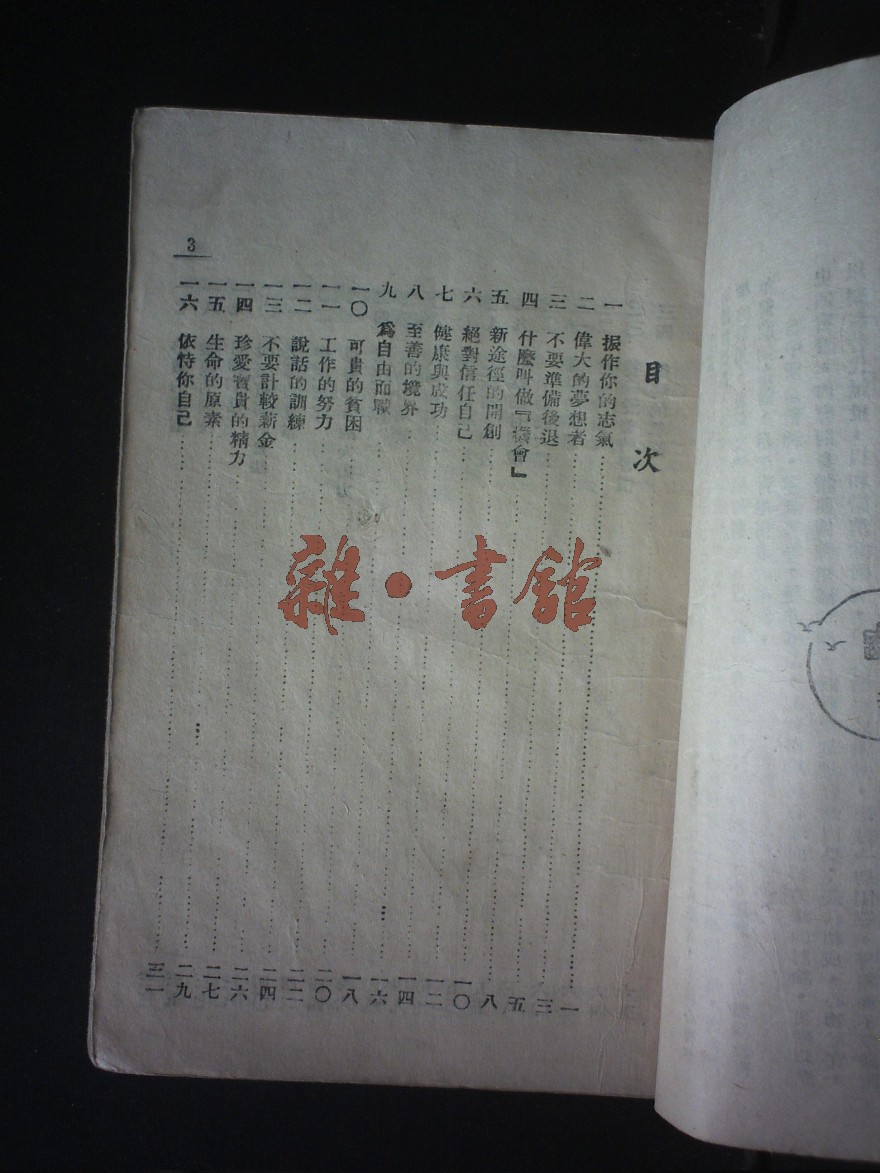 目次
一 振作你的志氣 一
二 偉大的夢想者 三
三 不要準備後退 五
四 什麼叫做『機會』 八
五 新途徑的開創 一〇
六 絕對信任自己 一二
七 健康與成功 一四
八 至善的境界 一六
九 爲自由而戰 一八
一〇 可貴的貧困 二〇
一一 工作的努力 二二
一二 說話的訓練 二四
一三 不要計較薪金 二六
一四 珍愛寶貴的精力 二七
一五 生命的原素 二九
一六 依恃你自己 三一
3
雜·書館